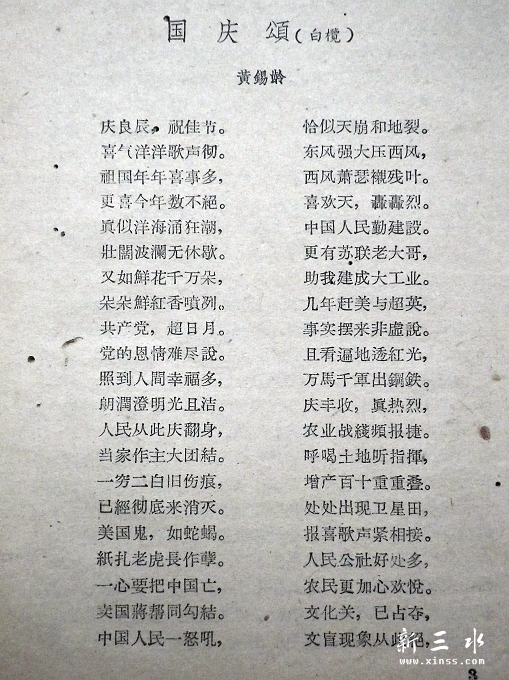 国庆頌(白欖)
黃錫齡
庆良辰，祝佳节。
喜气洋洋歌声彻。
祖国年年喜事多，
更喜今年数不絕。
眞似洋海涌狂潮，
壯闊波瀾无休歇。
又如鮮花千万朵，
朵朵鮮紅香噴冽。
共产党，超日月。
党的恩情难尽說。
照到人間幸福多，
朗潤澄明光且洁。
人民从此庆翻身，
当家作主大团結。
一穷二白旧伤痕，
已經彻底来消灭。
美国鬼，如蛇蝎。
紙扎老虎長作孽。
一心要把中国亡，
卖国蔣帮同勾結。
中国人民一怒吼，
恰似天崩和地裂。
东风强大压西风，
西风萧瑟襯残叶。
喜欢天，轟轟烈。
中国人民勤建設。
更有苏联老大哥，
助我建成大工业。
几年赶美与超英，
事实摆来非虛說。
且看遍地透紅光，
万馬千軍出鋼鉄。
庆丰收，眞热烈，
农业战綫頻报捷。
呼喝土地听指揮，
增产百十重重叠。
处处出现卫星田，
报喜歌声紧相接。
人民公社好处多，
农民更加心欢悅。
文化关，已占夺，
文盲现象从此絕，
3
新三水
www.xinss.com